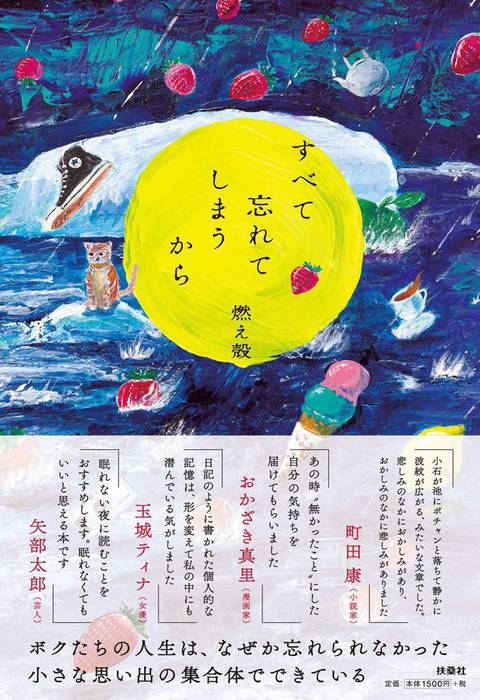 すべて
忘れて
しまう
から
燃え殻
小石が池にポチャンと落ちて静かに
波紋が広がる、みたいな文章でした。
悲しみのなかにおかしみがあり、
おかしみのなかに悲しみがありました
町田 康(小説家)
あの時〝無かったこと〟にした
自分の気持ちを
届けてもらいました
おかざき真里(漫画家)
日記のように書かれた個人的な
記憶は、形を変えて私の中にも
潜んでいる気がしました
玉城ティナ(女優)
眠れない夜に読むことを
おすすめします。眠れなくても
いいと思える本です
矢部太郎(芸人)
ボクたちの人生は、なぜか忘れられなかった
小さな思い出の集合体でできている
扶桑社
定価:本体1500円+税